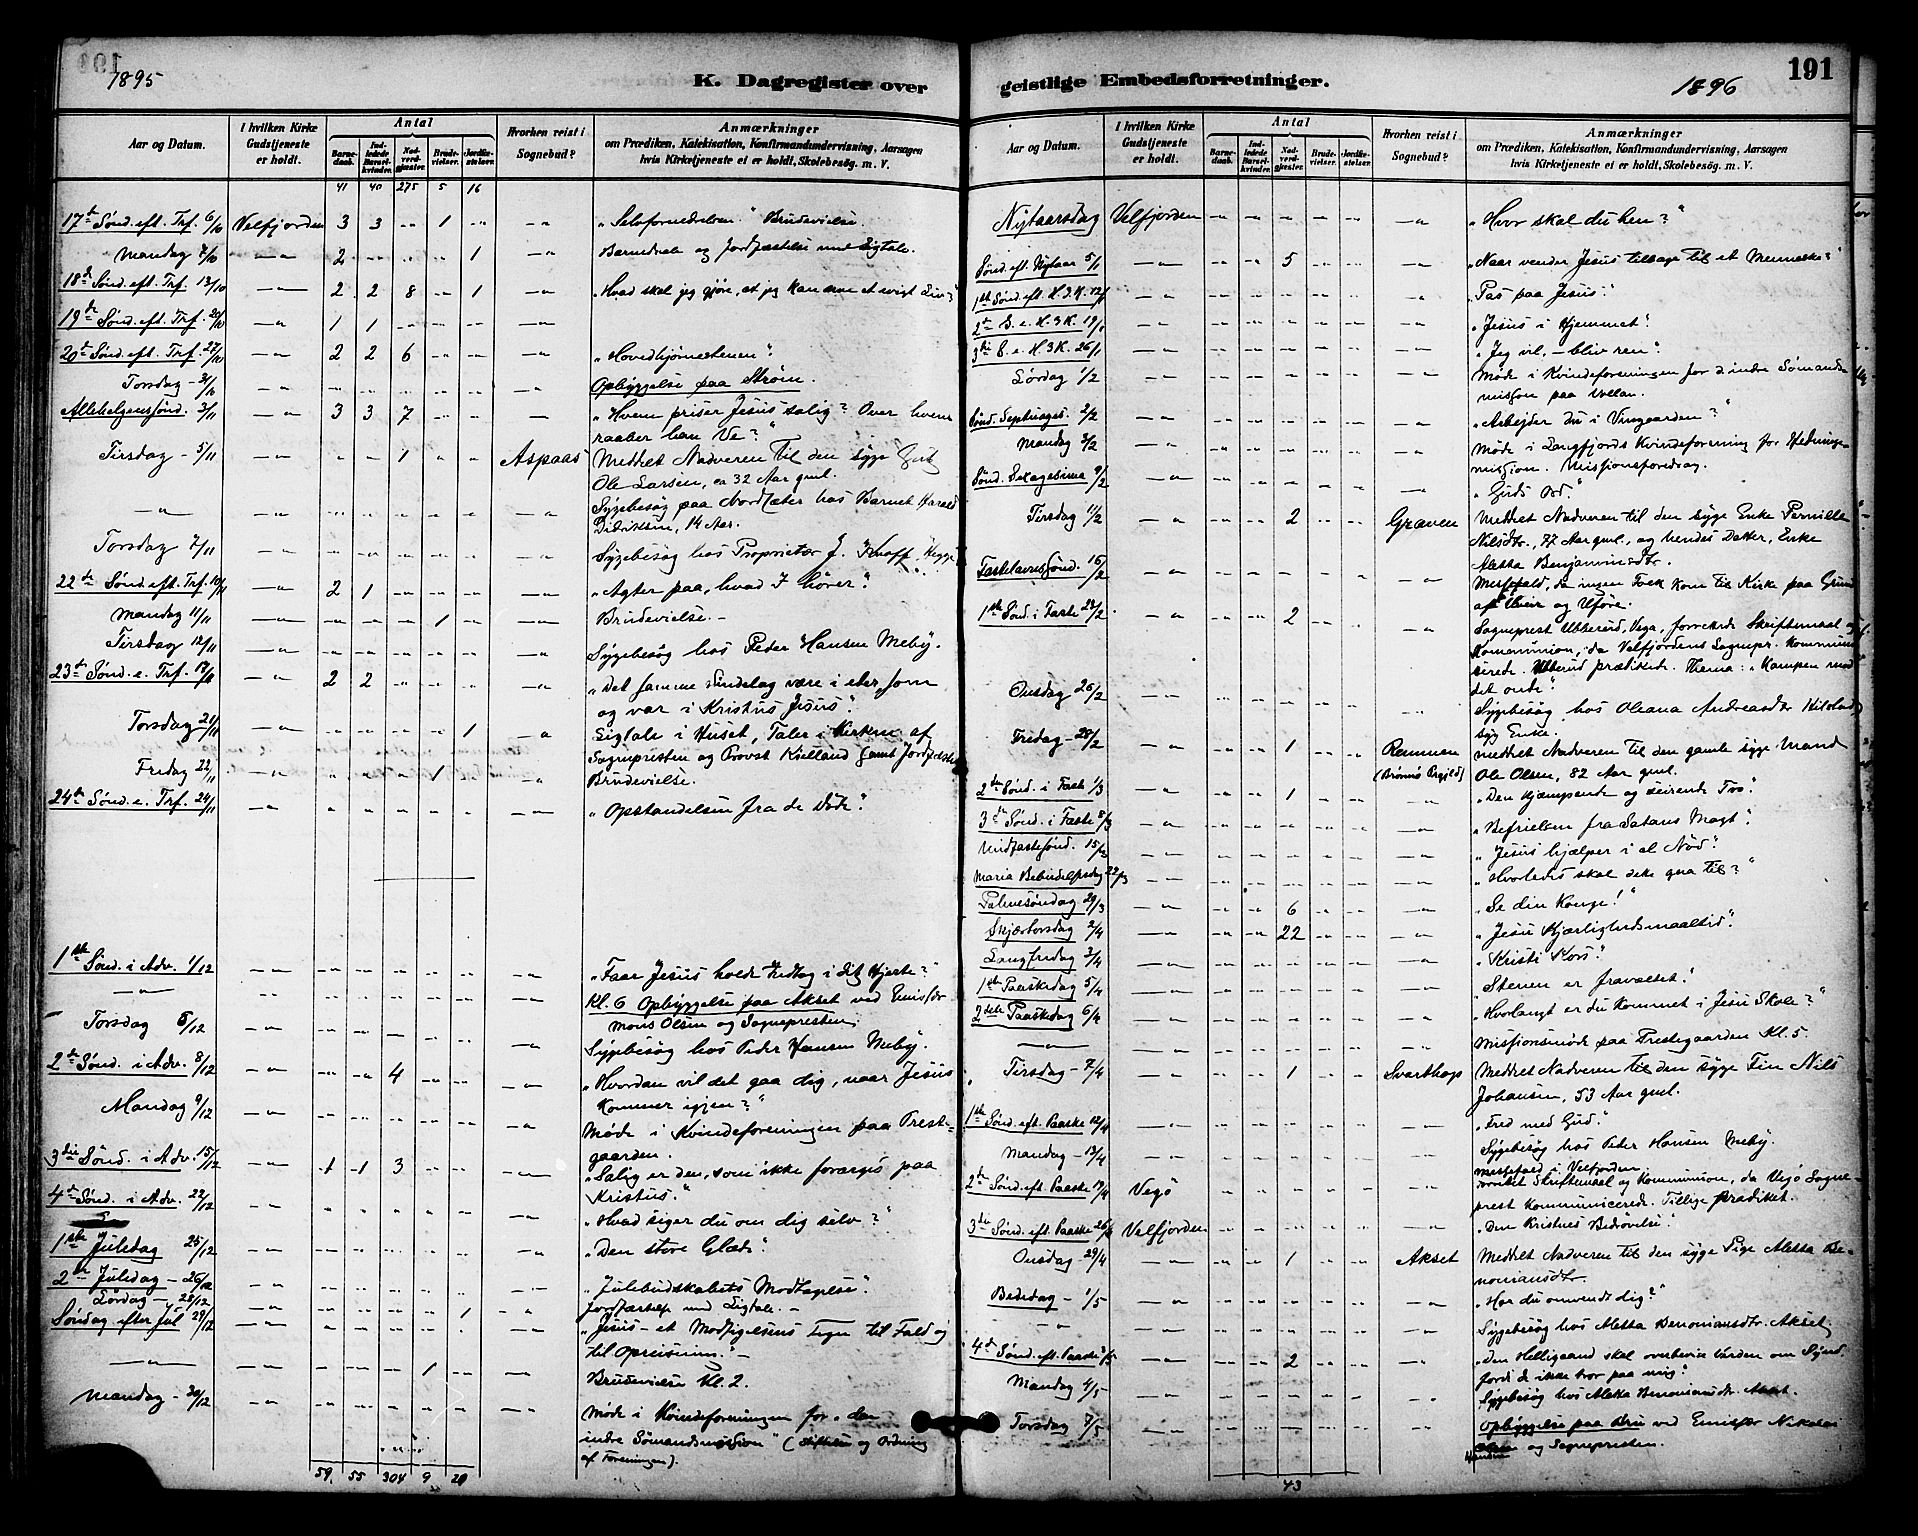 1895
K. Dagregister over
Aar og Datum.
I hvilken Kirke Gudstjeneste er holdt.
Antal
Barnedaab.
Indledede Barselkvinder.
Nadverdgjester.
Brudevielser.
Jordfæstelser.
Hvorhen reist i Sognebud?
Anmærkninger
om Prædiken, Katekisation, Konfirmandundervisning, Aarsagen
hvis Kirketjeneste ei er holdt, Skolebesög. m. V.
41 40 275 5 16
17de Sønd. eft. Trf. 6/10 Velfjorden 3 3 -"- 1 -"- -"- "Selvfornedrelsen." Brudevielse.
Mandag 7/10 -"- 2 -"- -"- -"- 1 -"- Barnedaab og Jordfæstelse med Ligtale.
18de Sønd. eft. Trf. 13/10 -"- 2 2 8 -"- 1 -"- "Hvad skal jeg gjøre, at jeg kan arve et evigt Liv?"
19de Sønd. eft. Trf. 20/10 -"- 1 1 -"- -"- -"- -"-
20de Sønd. eft. Trf. 27/10 -"- 2 2 6 -"- -"- -"- "Hovedhjørnestenen".
Torsdag - 31/10 Opbyggelse paa Strøm.
Allehelgenssønd. 3/11 -"- 3 3 7 -"- -"- -"- "Hvem priser Jesus salig? Over hvem
raaber han Ve?"
Tirsdag - 5/11 -"- -"- -"- 1 -"- -"- Aspaas Meddelt Nadveren til den syge Gut
Ole Larsen, ca 32 Aar gml.
-"- -"- Sygebesøg paa Nordsæter hos Barnet Harald
Didriksen, 14 Aar.
Torsdag 7/11 -"- Sygebesøg hos Proprietær J. Knoff,
22de Sønd. eft. Trf. 10/11 -"- 2 1 -"- -"- -"- -"- "Agter paa, hvad I hører".
Mandag 11/11 -"- -"- -"- -"- 1 -"- -"- Brudevielse. -
Tirsdag 12/11 -"- Sygebesøg hos Peder Hansen Meby.
23de Sønd. e. Trf. 17/11 -"- 2 2 -"- -"- -"- -"- "Det samme Sindelag være i eder, som
og var i Kristus Jesus".
Torsdag 21/11 -"- 1 -"- Ligtale i Huset, Taler i Kirken af
Sognepresten og Provst Kielland samt Jordfæstelse
Fredag 22/11 -"- 1 Brudevielse.
24de Sønd. e. Trf. 24/11 -"- "Opstandelsen fra de Døde".
1ste Sønd. i Adv. 1/12 -"- "Faar Jesus holde Indtog i dit Hjerte?"
-"- Kl. 6 Opbyggelse paa Akset ved Emissær
Mons Olsen og Sognepresten.
Torsdag 5/12 Sygebesøg hos Peder Hansen Meby.
2de Sønd. i Adv. 8/12 -"- 4 "Hvordan vil det gaa dig, naar Jesus
kommer igjen?"
Mandag 9/12 -"- Møde i Kvindeforeningen paa Prest-
gaarden.
3die Sønd. i Adv. 15/12 -"- 1 1 3 "Salig er den, som ikke forarges paa
Kristus."
4de Sønd. i Adv. 22/12 "Hvad siger du om dig selv?"
1ste Juledag 25/12 "Den store Glæde".
2den Juledag - 26/12 "Julebudskabets Modtagelse".
Lørdag - 28/12 1 Jordfæstelse med Ligtale. -
Søndag efter Jul 29/12 "Jesus - et Modsigelsens Tegn til Fald og
til Opreisning". -
-"- 1 Brudevielse Kl. 2.
Mandag - 30/12 Møde i Kvindeforeningen for "den
indre Sømandsmission" (Stiftelse og Ordning
af Foreningen).
59 55 304 9 20
191
geistlige Embedsforretninger.
1896
Aar og Datum.
I hvilken Kirke Gudstjeneste er holdt.
Antal
Barnedaab.
Indledede Barselkvinder.
Nadverdgjester.
Brudevielser.
Jordfæstelser.
Hvorhen reist i Sognebud?
Anmærkninger
om Prædiken, Katekisation, Konfirmandundervisning, Aarsagen
hvis Kirketjeneste ei er holdt, Skolebesög. m. V.
Nytaarsdag Velfjorden "Hvor skal du hen?"
Sønd. eft. Nytaar 5/1 -"- 5 "Naar vender Jesus tilbage til et Menneske?"
1ste Sønd. eft. H.3.K. 12/1 -"- "Pas paa Jesus".
2de S. e. H.3K. 19/1 -"- "Jesus i Hjemmet".
3die S. e. H.3K. 26/1 -"- "Jeg vil, - bliv ren".
Lørdag 1/2 Møde i Kvindeforeningen for d. indre Sømands-
mission paa
Sønd. Septuages. 2/2 -"- "Arbejder du i Vingaarden?"
Mandag 3/2 -"- Møde i Langfjords Kvindeforening for Hedninge-
mission. Missionsforedrag.
Sønd. Sexagesima 9/2 -"- "Guds Ord."
Tirsdag 11/2 -"- 2 Græven Meddelt Nadveren til den syge Enke Pernille
Nilsdtr., 77 Aar gml., og hendes Datter, Enke
Aletta Benjaminsdtr.
Fastelavnssønd. 16/2 -"- Messefald, da ingen Folk kom til Kirke paa Grund
af Uveir og Uføre.
1ste Sønd. i Faste 23/2 -"- 2 Sogneprest Ubberud, Vega, forrettede Skriftemaal og
Kommunion, da Velfjordens Sognepr. kommuni-
cerede. Ubberud prædikede. Thema: "Kampen mod
det onde".
Onsdag 26/2 -"- Sygebesøg hos Oleana Andreasdtr Hilstad,
syg Enke.
Fredag - 28/2 -"- 1 Remmen Meddelt Nadveren til den gamle syge Mand
(Brønnø Prgjld) Ole Olsen, 82 Aar gml.
2den Sønd. i Faste 1/3 -"- 1 "Den kjæmpende og seirende Tro".
3die Sønd. i Faste 8/3 -"- "Befrielsen fra Satans Magt".
Midfastesønd. 15/3 -"- "Jesus hjælper i al Nød".
Maria Bebudelsesdag 22/3 -"- "Hvorledes skal dette gaa til?"
Palmesøndag 29/3 -"- 6 "Se din Konge!"
Skjærtorsdag 2/4 -"- 22 "Jesu Kjærlighedsmaaltid".
Langfredag 3/4 -"- "Kristi Kors".
1ste Paaskedag 5/4 -"- "Stenen er fravæltet".
2den Paaskedag 6/4 -"- "Hvorlangt er du kommet i Jesu Skole?"
-"- Missionsmøde paa Prestegaarden Kl. 5.
Tirsdag - 7/4 -"- 1 Svarthop Meddelt Nadveren til den syge Fin Nils
Johansen, 53 Aar gml.
1ste Sønd. eft. Paaske 12/4 -"- "Fred med Gud".
Mandag - 13/4 -"- Sygebesøg hos Peter Hansen Meby.
Messefald i Velfjorden
2de Sønd. eft. Paaske 19/4 Vegø Forrettet Skriftemaal og Kommunion, da Vegø Sogne-
prest kommunicerede. Tillige prædiket.
3die Sønd. eft. Paaske 26/4 Velfjorden "Den Kristnes Bedrøvelse".
Onsdag 29/4 -"- 1 Akset Meddelt Nadveren til den syge Pige Aletta Be-
noniansdtr.
Bededag - 1/5 -"- "Har du omvendt dig?"
-"- Sygebesøg hos Aletta Benoniansdtr. Akset.
4de Sønd. eft. Paaske 3/5 -"- 2 "Den Helligaand skal overbevise Verden om Synd,
fordi de ikke tror paa mig".
Mandag 4/5 -"- Sygebesøg hos Aletta Benoniansdtr. Akset.
Torsdag 7/5 -"- Opbyggelse paa Bru ved Emissær Nikolai
Hansen og Sognepresten.
43